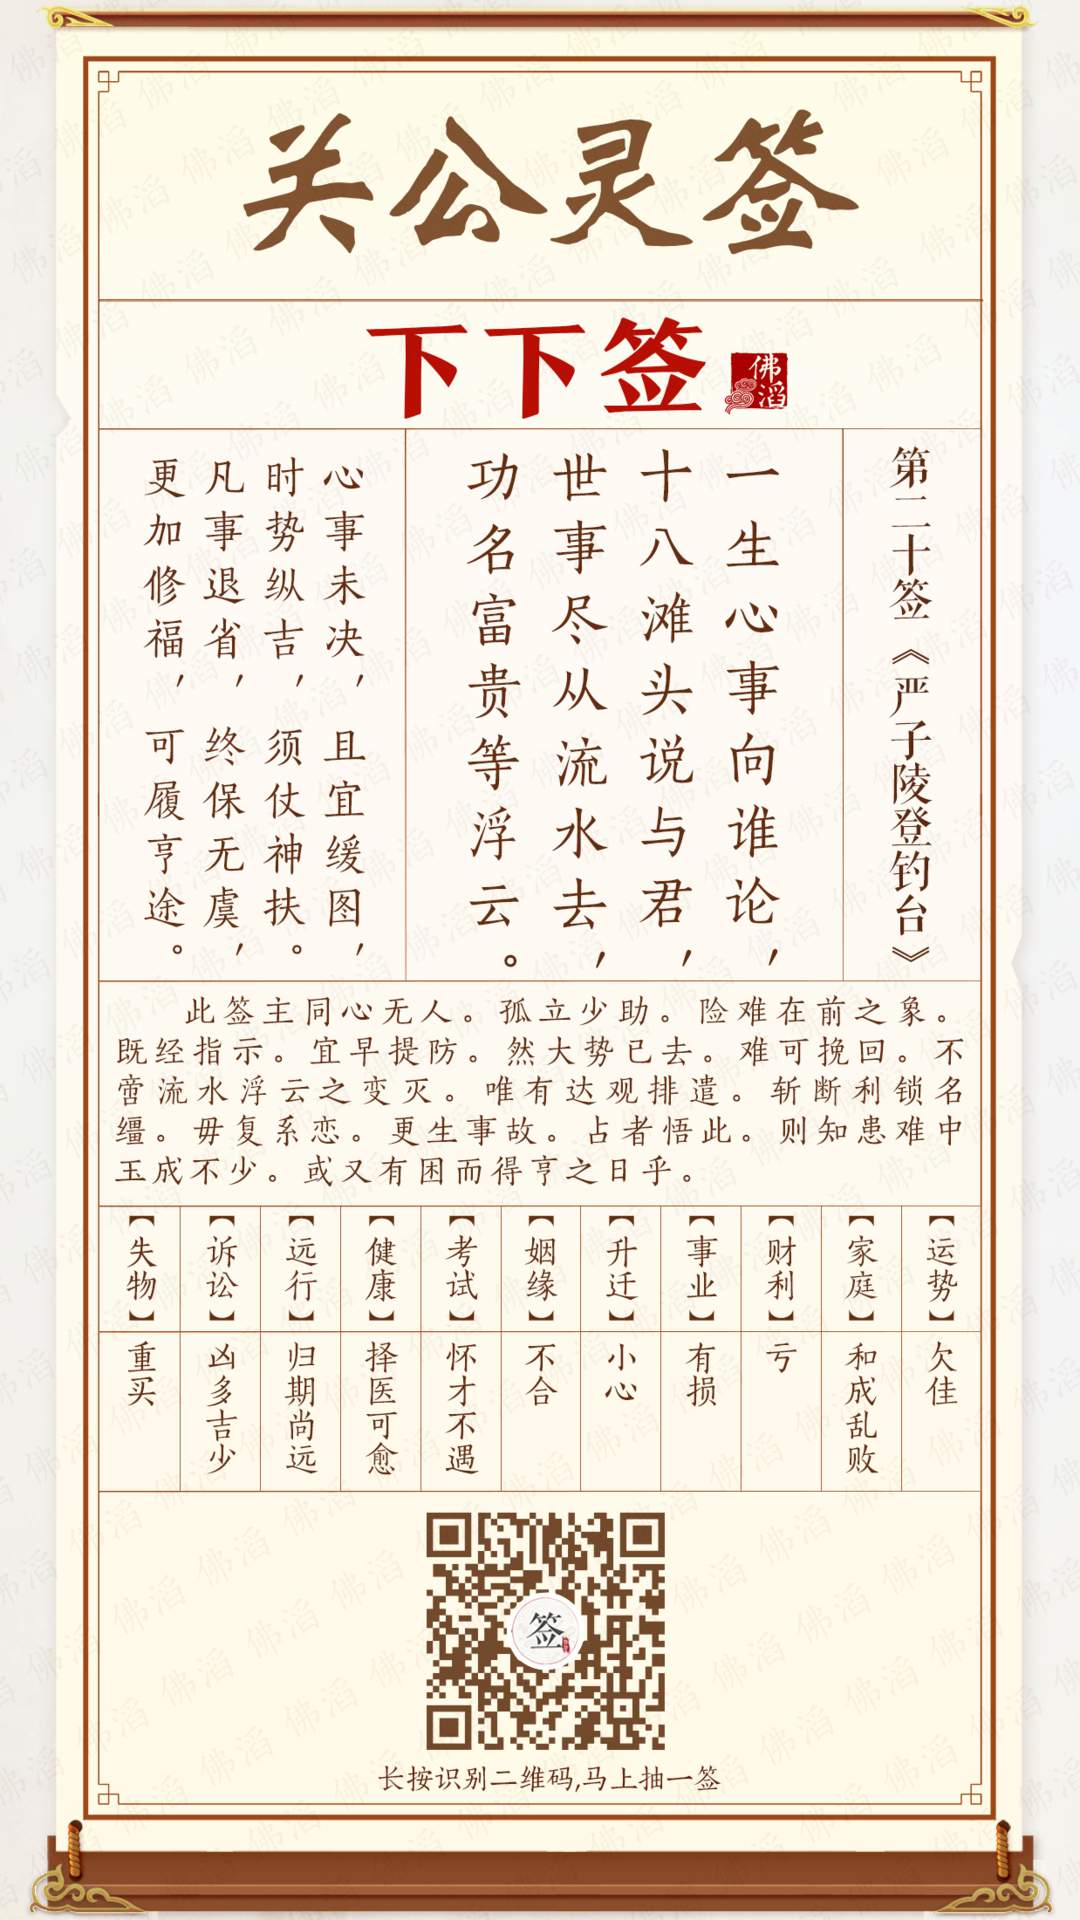 关公灵签
下下签
佛滔
第二十签《严子陵登钓台》
一生心事向谁论，
十八滩头说与君，
世事尽从流水去，
功名富贵等浮云。
心事未决，且宜缓图，
时势纵吉，须仗神扶。
凡事退省，终保无虞，
更加修福，可履亨途。
此签主同心无人。孤立少助。险难在前之象。
既经指示。宜早提防。然大势已去。难可挽回。不
啻流水浮云之变灭。唯有达观排遣。斩断利锁名
缰。毋复系恋。更生事故。占者悟此。则知患难中
玉成不少。或又有困而得亨之日乎。
【运势】
欠佳
【家庭】
和成乱败
【财利】
亏
【事业】
有损
【升迁】
小心
【姻缘】
不合
【考试】
怀才不遇
【健康】
择医可愈
【远行】
归期尚远
【诉讼】
凶多吉少
【失物】
重买
签
长按识别二维码,马上抽一签